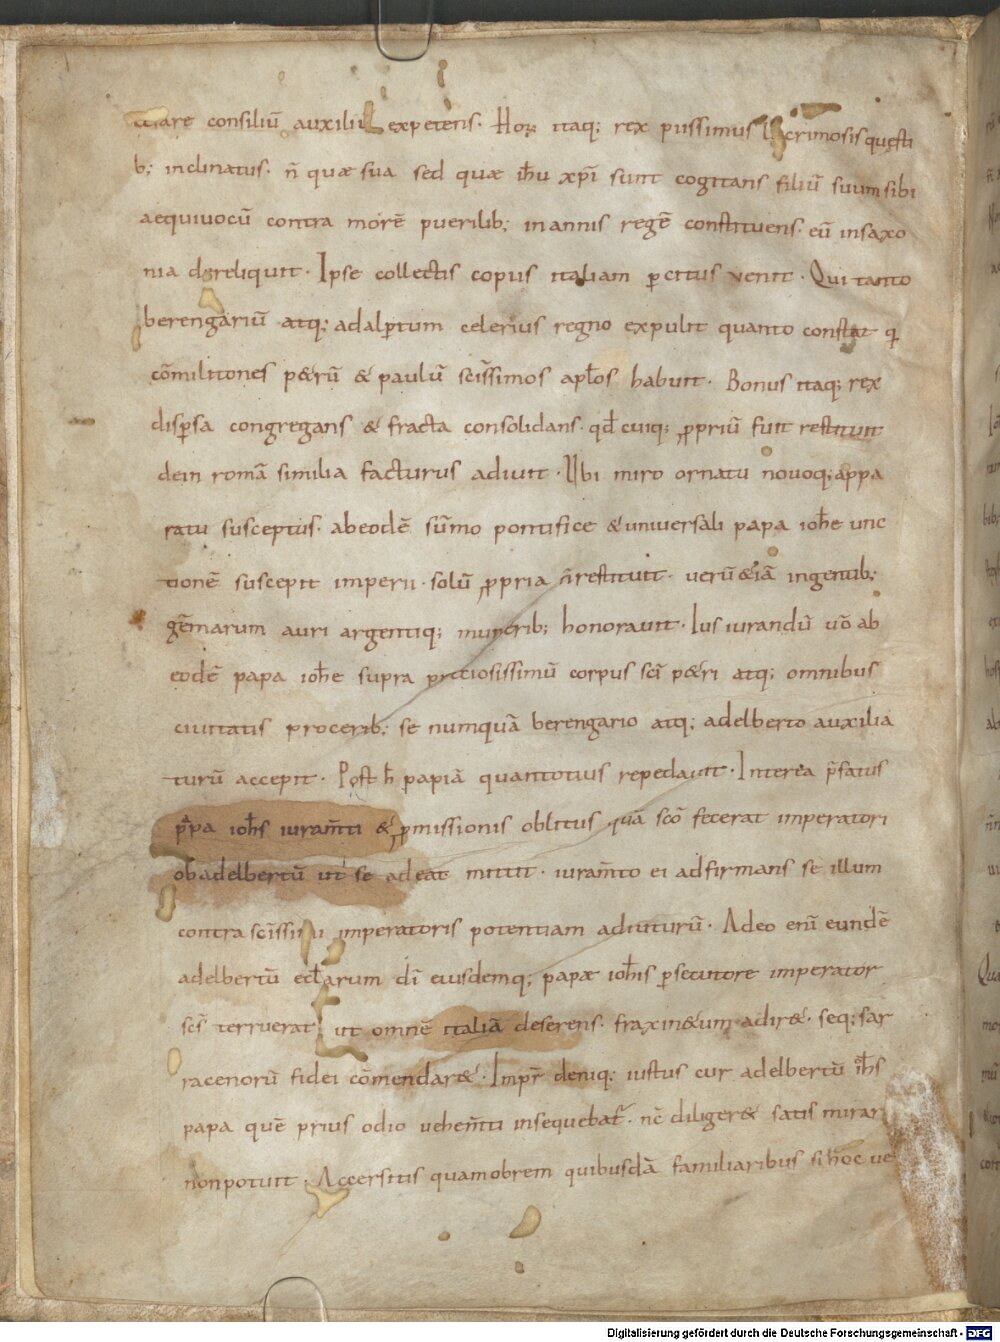 itare consiliū auxiliū expetens. Hoꝝ itaq; rex piissimus lacrimosis questi
b; inclinatus. n̄ quæ sua sed quæ ihu xp̄i sunt cogitans filiū suum sibi
aequiuocū contra morē puerilib; in annis regē constituens. eū in saxo
nia dereliquit. Ipse collectis copiis italiam ꝑcitus venit. Qui tanto
berengariū atq; adalꝑtum celerius regno expulit quanto constat q
cōmilitones p&rū & paulū sc̄issimos apl̄os habuit. Bonus itaq; rex
disꝑsa congregans & fracta consolidans. qđ cuiq; ꝓpriū fuit restituit
dein romā similia facturus adiuit. Ubi miro ornatu nouoq; appa
ratu susceptus. ab eodē sūmo pontifice & uniuersali papa ioħe unc
tionē suscepit imperii. solū ꝓpria n̄ restituit. verū &iā ingentib;
gēmarum auri argentiq; munerib; honorauit. Ius iurandū uō ab
eodē papa ioħe supra preciosissimū corpus sc̄i p&ri atq; omnibus
ciuitatis procerib; se numquā berengario atq; adelberto auxilia
turū accepit. Post ħ papiā quantotius repedauit. Interea p̄fatus
papa ioħs iuram̄ti & ꝓmissionis oblitus quā sc̄o fecerat imperatori
ob adelbertū ut se adeat mittit. iuram̄to ei adfirmans se illum
contra sc̄issimi imperatoris potentiam adiuturū. Adeo enī eundē
adelbertū eccl̄arum dī eiusdemq; papæ ioħis ꝑsecutore imperator
sc̄s terruerat ut omnē italiā deserens. fraxin&um adir&. seq; sar
racenorū fidei cōmendar&. Impr̄ deniq; iustus cur adelbertū ioħs
papa quē prius odio uehem̄ti insequebat̄. nc̄ diliger& satis mirari
non potuit. Accersitis quamobrem quibusdā familiaribus si hoc ue
Digitalisierung gefördert durch die Deutsche Forschungsgemeinschaft - DFG